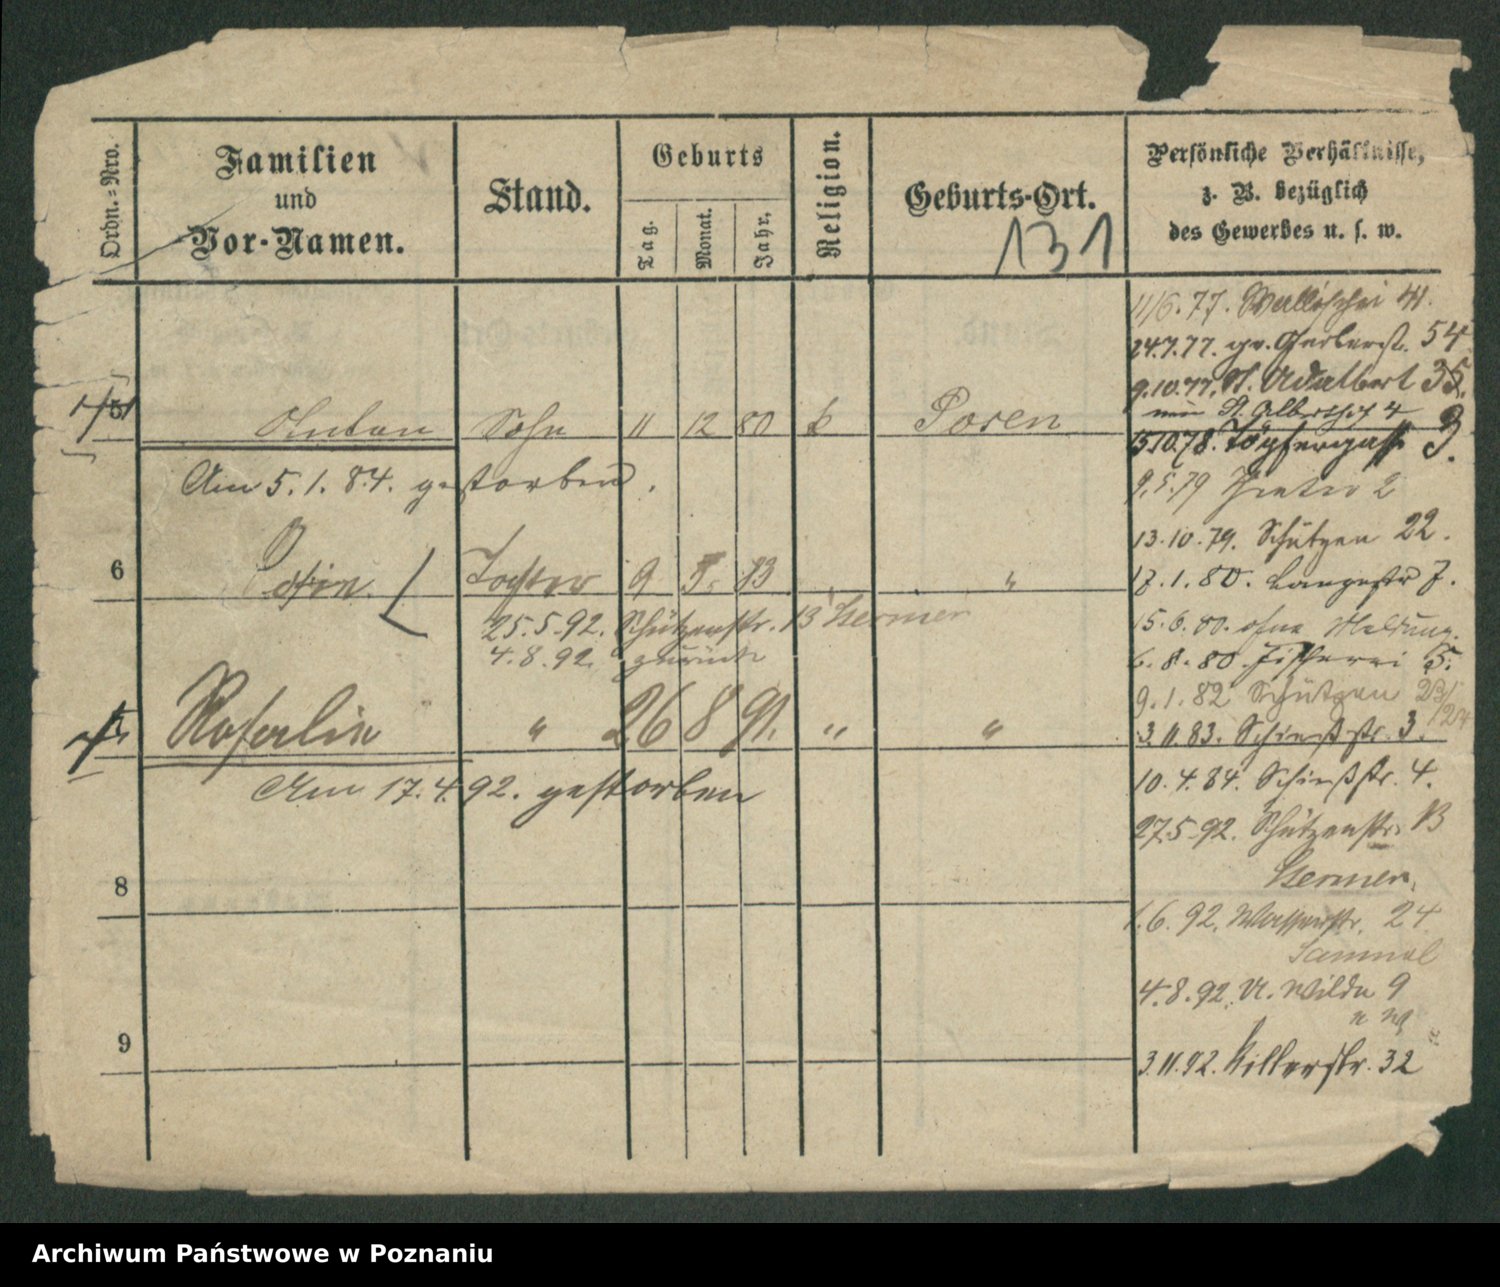 Ordn.=Nro.
Familien
und
Vor-Namen.
Stand.
Geburts
Tag.
Monat.
Jahr.
Religion.
Geburts-Ort.
131
Persönliche Verhältnisse,
z. B. bezüglich
des Gewerbes u. s. w.
5 Anton Sohn 11 12 80 k Posen
Am 5.1.84. gestorben.
6 Tochter 9 5. 83 " "
25.5.92. Schützenstr. 13 Hermer
4.8.92. zurück
Rosalie " 26 8 91. " "
Am 17.4.92. gestorben
8
9
11/6.77. Wallischei 41.
24.7.77. gr. Gerberst. 54
9.10.77. St. Adalbert 35.
15.10.78. Töpfergasse 3.
9.5.79 2
13.10.79. Schützen 22.
17.1.80. Langestr 7.
15.6.80. ohne Meldung.
6.8.80. Fischerei 5.
9.1.82 Schützen 23/24
3.11.83. Schießstr. 3.
10.4.84. Schießstr. 4.
27.5.92. Schützenstr. 13
Hermer.
1.6.92. Wasserstr. 24
4.8.92. 9
3.11.92. 32
Archiwum Państwowe w Poznaniu